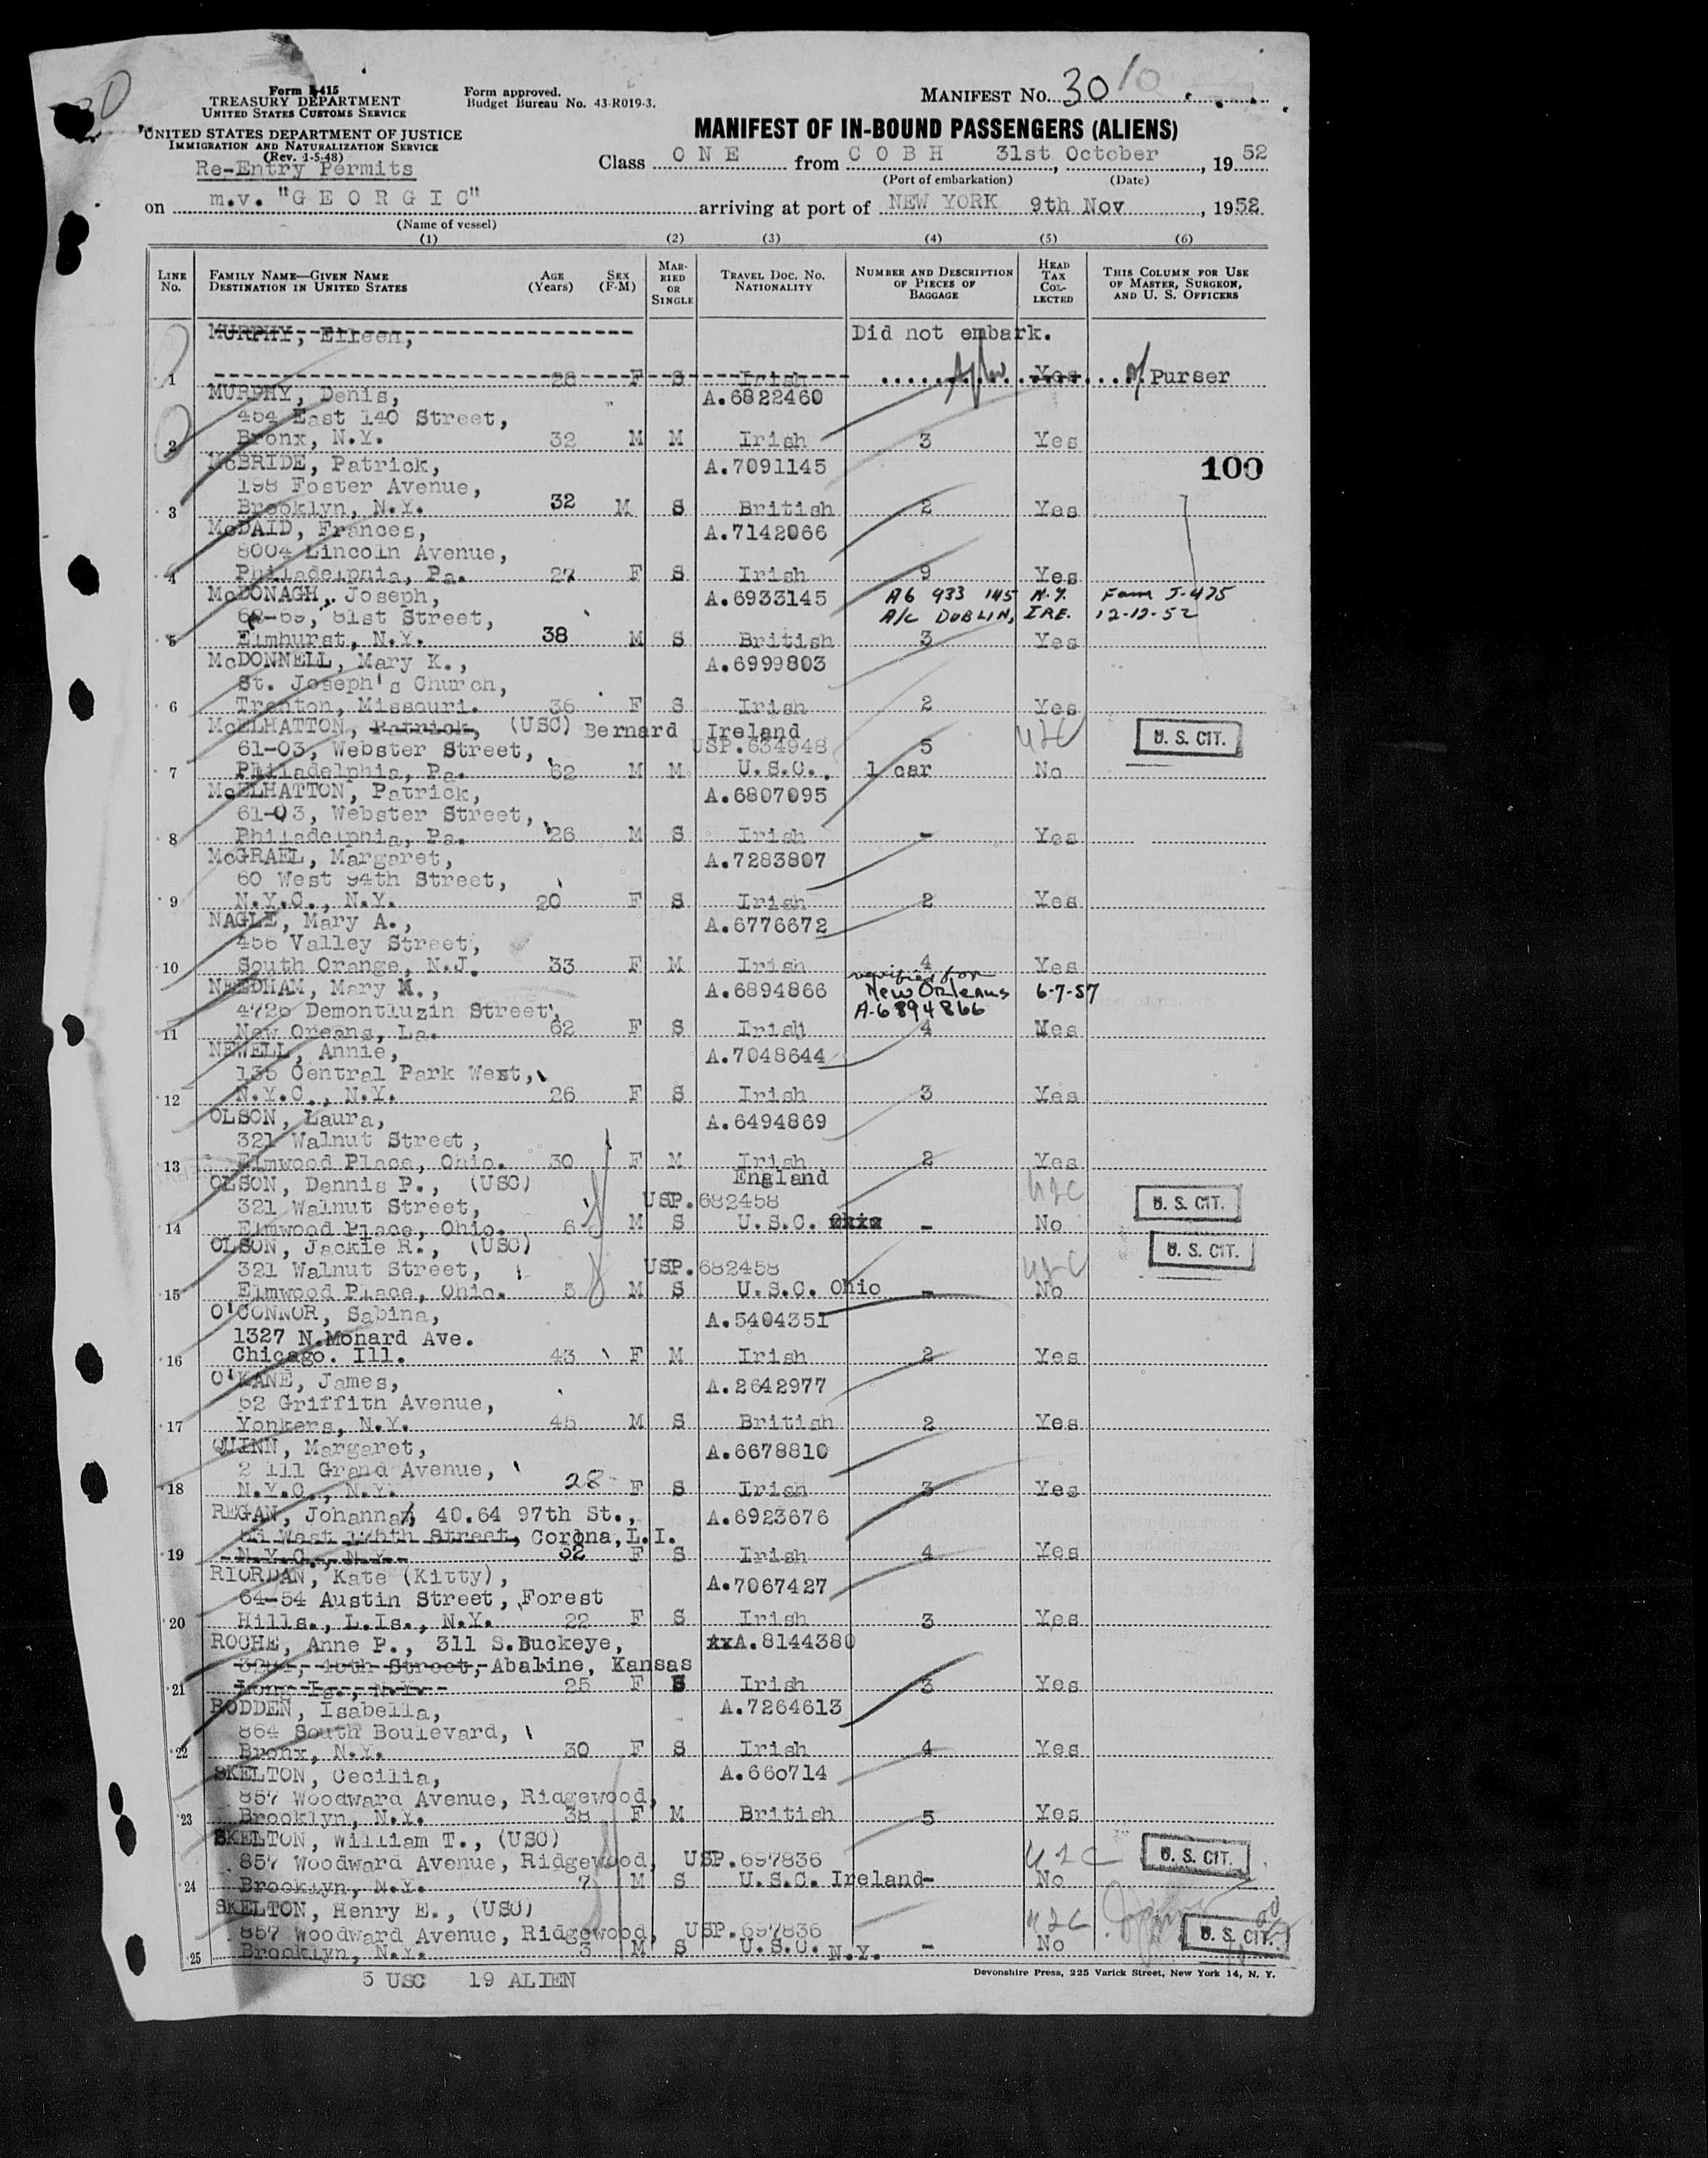 30
Form I-415
TREASURY DEPARTMENT
UNITED STATES CUSTOMS SERVICE
UNITED STATES DEPARTMENT OF JUSTICE
IMMIGRATION AND NATURALIZATION SERVICE
(Rev. 1-5-48)
Re-Entry Permits
Form approved.
Budget Bureau No. 43-R019-3.
MANIFEST NO. 30
MANIFEST OF IN-BOUND PASSENGERS (ALIENS)
Class O N E from C O B H 31st October, 1952
(Port of embarkation) (Date)
on m.v. "G E O R G I C" arriving at port of NEW YORK 9th Nov, 1952
(Name of vessel)
(1) (2) (3) (4) (5) (6)
LINE No. FAMILY NAME—GIVEN NAME DESTINATION IN UNITED STATES AGE (Years) SEX (F-M) MARRIED OR SINGLE TRAVEL DOC. NO. NATIONALITY NUMBER AND DESCRIPTION OF PIECES OF BAGGAGE HEAD TAX COLLECTED THIS COLUMN FOR USE OF MASTER, SURGEON, AND U. S. OFFICERS
MURPHY, Eileen, Did not embark.
1 26 F S Irish Yes Purser
MURPHY, Denis, A.6822460
454 East 140 Street,
2 Bronx, N.Y. 32 M M Irish 3 Yes
McBRIDE, Patrick, A.7091145 100
198 Foster Avenue,
3 Brooklyn, N.Y. 32 M S British 2 Yes
McDAID, Frances, A.7142066
8004 Lincoln Avenue,
4 Philadelphia, Pa. 27 F S Irish 9 Yes
McDONAGH, Joseph, A.6933145 A6 933 145 N.Y. Form I-475
81st Street, A/C DUBLIN, IRE. 12-12-52
5 Elmhurst, N.Y. 38 M S British 3 Yes
McDONNELL, Mary K., A.6999803
St. Joseph's Church,
6 Trenton, Missouri. 36 F S Irish 2 Yes
McELHATTON, Patrick, (USC) Bernard Ireland
61-03, Webster Street, USP.634948 5 U. S. CIT.
7 Philadelphia, Pa. 62 M M U.S.C. 1 car No
McELHATTON, Patrick, A.6807095
61-03, Webster Street,
8 Philadelphia, Pa. 26 M S Irish - Yes
McGRAEL, Margaret, A.7283807
60 West 94th Street,
9 N.Y.C., N.Y. 20 F S Irish 2 Yes
NAGLE, Mary A., A.6776672
456 Valley Street,
10 South Orange, N.J. 33 F M Irish 4 Yes
NEEDHAM, Mary M., A.6894866 verified for New Orleans 6-7-57
4726 Demontluzin Street, A-6894866
11 New Oreans, La. 62 F S Irish 4 Yes
NEWELL, Annie, A.7048644
135 Central Park West,
12 N.Y.C., N.Y. 26 F S Irish 3 Yes
OLSON, Laura, A.6494869
321 Walnut Street,
13 Elmwood Place, Ohio. 30 F M Irish 2 Yes
OLSON, Dennis P., (USC) England
321 Walnut Street, USP.682458 U. S. CIT.
14 Elmwood Place, Ohio. 6 M S U.S.C. Ohio - No
OLSON, Jackie R., (USC) U. S. CIT.
321 Walnut Street, USP.682458
15 Elmwood Place, Ohio. 5 M S U.S.C. Ohio - No
O'CONNOR, Sabina, A.5404351
1327 N.Monard Ave.
16 Chicago. Ill. 43 F M Irish 2 Yes
O'KANE, James, A.2642977
62 Griffith Avenue,
17 Yonkers, N.Y. 45 M S British 2 Yes
QUINN, Margaret, A.6678810
2 111 Grand Avenue,
18 N.Y.C., N.Y. 28 F S Irish 3 Yes
REGAN, Johanna, 40.64 97th St., A.6923676
West Street, Corona, L.I.
19 N.Y.C., N.Y. 32 F S Irish 4 Yes
RIORDAN, Kate (Kitty), A.7067427
64-54 Austin Street, Forest
20 Hills., L.Is., N.Y. 22 F S Irish 3 Yes
ROCHE, Anne P., 311 S.Buckeye, A.8144380
Street, Abaline, Kansas
21 Long Is., N.Y. 25 F S Irish 3 Yes
RODDEN, Isabella, A.7264613
864 South Boulevard,
22 Bronx, N.Y. 30 F S Irish 4 Yes
SKELTON, Cecilia, A.660714
857 Woodward Avenue, Ridgewood,
23 Brooklyn, N.Y. 38 F M British 5 Yes
SKELTON, William T., (USC)
857 Woodward Avenue, Ridgewood, USP.697836 U. S. CIT.
24 Brooklyn, N.Y. 7 M S U.S.C. Ireland - No
SKELTON, Henry E., (USC)
857 Woodward Avenue, Ridgewood, USP.697836 U. S. CIT.
25 Brooklyn, N.Y. 3 M S U.S.C. N.Y. - No
5 USC 19 ALIEN
Devonshire Press, 225 Varick Street, New York 14, N. Y.